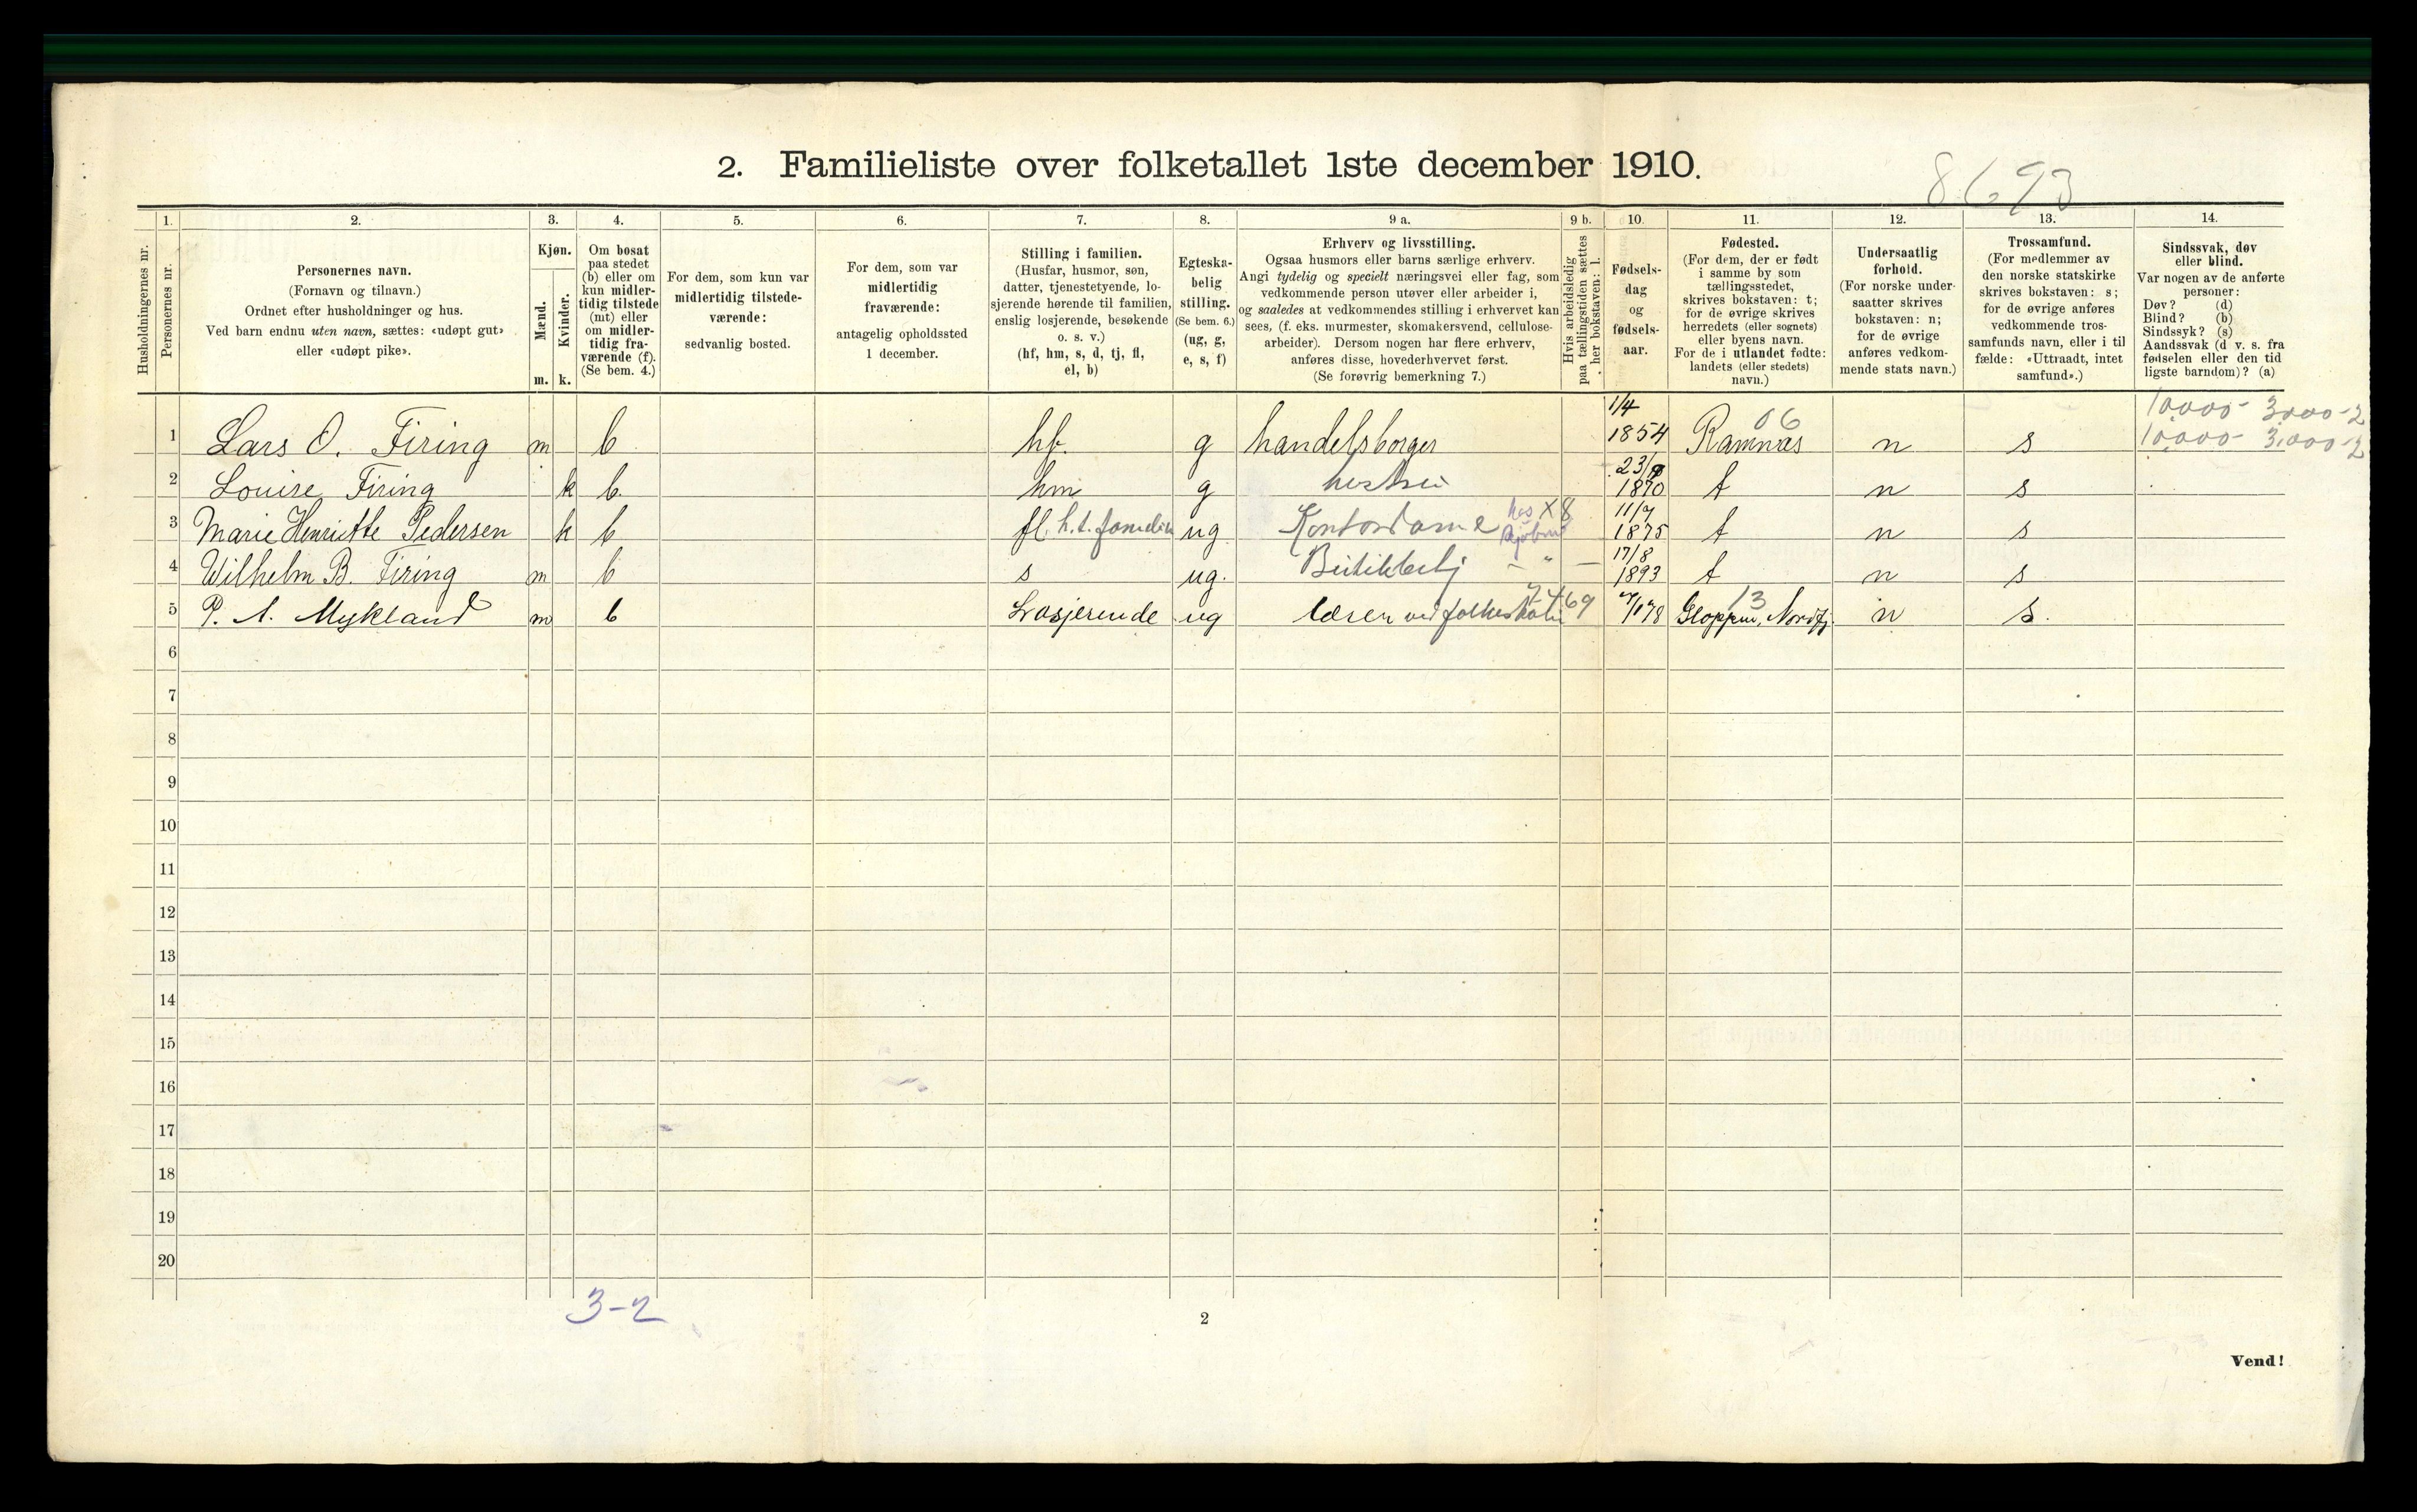 2. Familieliste over folketallet 1ste december 1910.
8693
Husholdningernes nr.
1.
Personernes nr.
2.
Personernes navn.
(Fornavn og tilnavn.)
Ordnet efter husholdninger og hus.
Ved barn endnu uten navn, sættes: «udøpt gut»
eller «udøpt pike».
3.
Kjøn.
Mænd.
Kvinder.
m. k.
4.
Om bosat
paa stedet
(b) eller om
kun midler-
tidig tilstede
(mt) eller
om midler-
tidig fra-
værende (f).
(Se bem. 4.)
5.
For dem, som kun var
midlertidig tilstede-
værende:
sedvanlig bosted.
6.
For dem, som var
midlertidig
fraværende:
antagelig opholdssted
1 december.
7.
Stilling i familien.
(Husfar, husmor, søn,
datter, tjenestetyende, lo-
sjerende hørende til familien,
enslig losjerende, besøkende
o. s. v.)
(hf, hm, s, d, tj, fl,
el, b)
8.
Egteska-
belig
stilling.
(Se bem. 6.)
(ug, g,
e, s, f)
9 a.
Erhverv og livsstilling.
Ogsaa husmors eller barns særlige erhverv.
Angi tydelig og specielt næringsvei eller fag, som
vedkommende person utøver eller arbeider i,
og saaledes at vedkommendes stilling i erhvervet kan
sees, (f. eks. murmester, skomakersvend, cellulose-
arbeider). Dersom nogen har flere erhverv,
anføres disse, hovederhvervet først.
(Se forøvrig bemerkning 7.)
9 b.
Hvis arbeidsledig
paa tællingstiden sættes
her bokstaven: l.
10.
Fødsels-
dag
og
fødsels-
aar.
11.
Fødested.
(For dem, der er født
i samme by som
tællingsstedet,
skrives bokstaven: t;
for de øvrige skrives
herredets (eller sognets)
eller byens navn.
For de i utlandet fødte:
landets (eller stedets)
navn.)
12.
Undersaatlig
forhold.
(For norske under-
saatter skrives
bokstaven: n;
for de øvrige
anføres vedkom-
mende stats navn.)
13.
Trossamfund.
(For medlemmer av
den norske statskirke
skrives bokstaven: s;
for de øvrige anføres
vedkommende tros-
samfunds navn, eller i til
fælde: «Uttraadt, intet
samfund».)
14.
Sindssvak, døv
eller blind.
Var nogen av de anførte
personer:
Døv? (d)
Blind? (b)
Sindssyk? (s)
Aandssvak (d v. s. fra
fødselen eller den tid
ligste barndom)? (a)
10000- 3000-2
1 Lars O. Firing m b hf. g handelsborger 1/4 1854 06 Ramnæs n s 10000- 3.000-2
2 Louise Firing k b. hm g 1870 t n s
3 Marie Henriette Pedersen k b fl. h.t. familien ug Kontordame hos X8 1875 t n s
4 Wilhelm B. Firing m b s ug. Butikbetj — " — 17/8 1893 t n s
5 P. A. Mykland m b Losjerende ug lærer ved folkeskolen 7469 13 Gloppen, Nordfj. n s.
6
7
8
9
10
11
12
13
14
15
16
17
18
19
20
3-2
2
Vend!